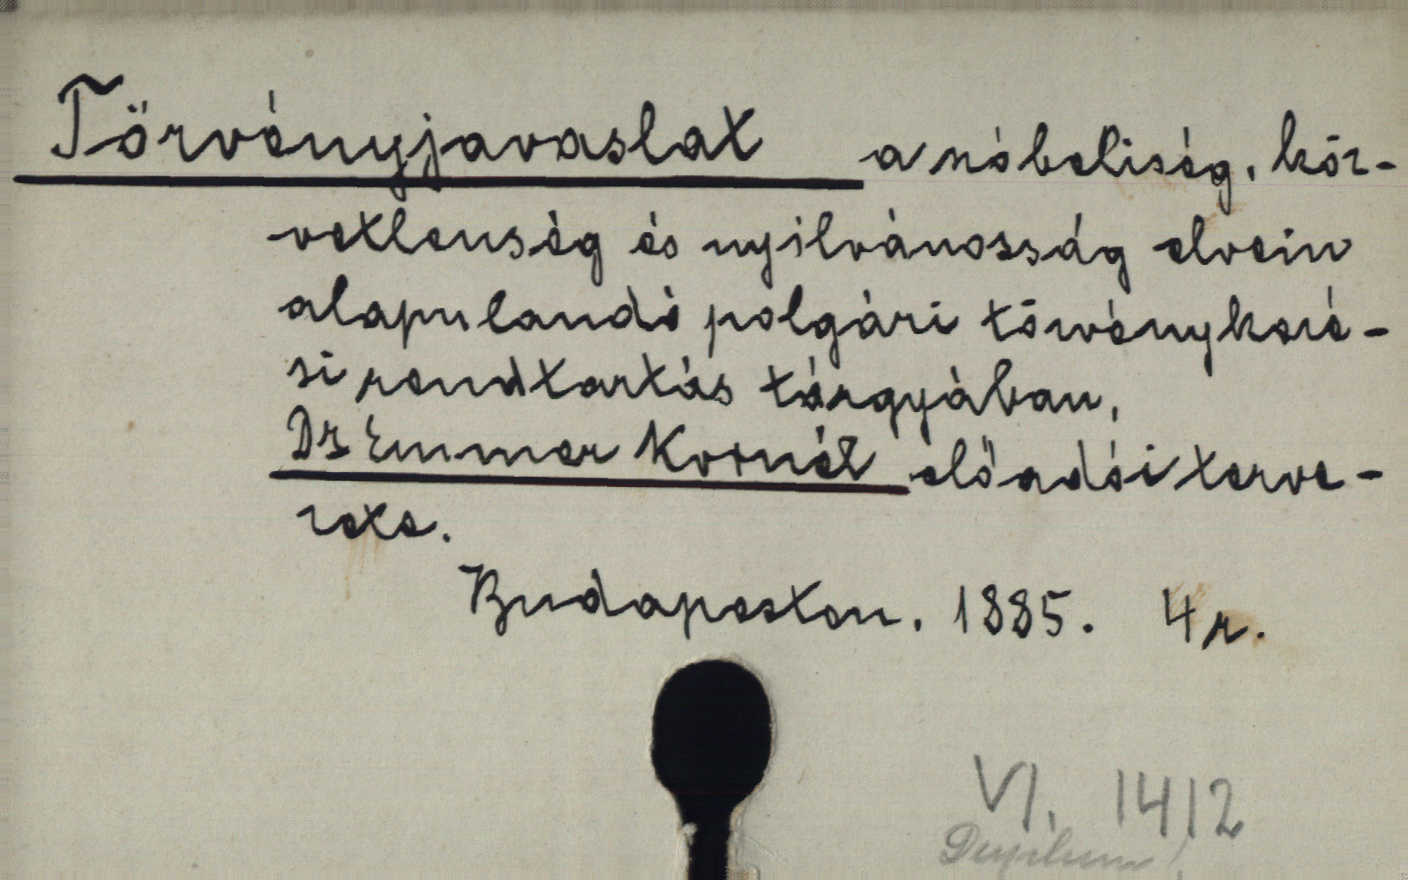 Törvényjavaslat a szóbeliség, köz-
vetlenség és nyilvánosság elvein
alapulandó polgári törvénykezé-
si rendtartás tárgyában,
Dr Emmer Kornél előadói terve-
zete.
Budapesten. 1885. 4r.
VI. 1412
Duplum